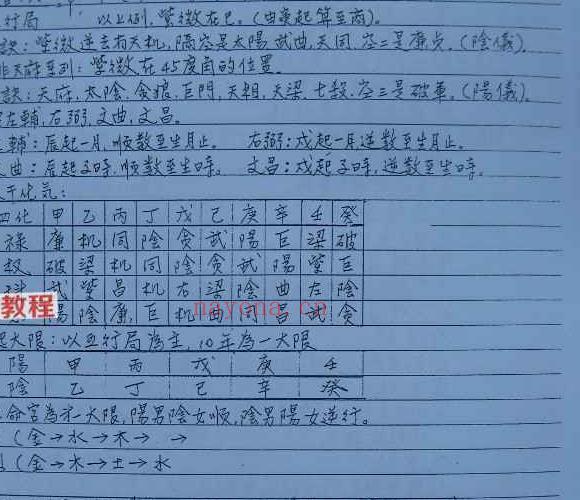 行局　　以上例,紫微在巳。(由寅起算至酉)。
訣:紫微逆去有天机,隔壹是太陽武曲,天同,空三是廉貞(陰儀)。
排天府系列:紫微在45度角的位置。
訣:天府,太陰,貪狼,巨門,天相,天梁,七殺,空三是破軍。(陽儀)。
左輔,右弼,文曲,文昌。
輔:辰起一月,順数至生月止。　右弼:戍起一月逆数至生月止。
曲:辰起子時,順数至生時。　文昌:戍起子時,逆数至生時。
干化気:
四化 甲 乙 丙 丁 戊 己 庚 辛 壬 癸
祿 廉 机 同 陰 貪 武 陽 巨 梁 破
权 破 梁 机 同 陰 貪 武 陽 紫 巨
武 紫 昌 机 右 梁 陰 曲 左 陰
陽 陰 廉 巨 机 曲 同 昌 武 貪
教程
nayona.cn
起大限:以五行局為主,10年為一大限
陽 甲 丙 戊 庚 壬
陰 乙 丁 己 辛 癸
命宮為才一大限,陽男陰女順,陰男陽女逆行。
(金→水→木→　→
(金→木→土→水